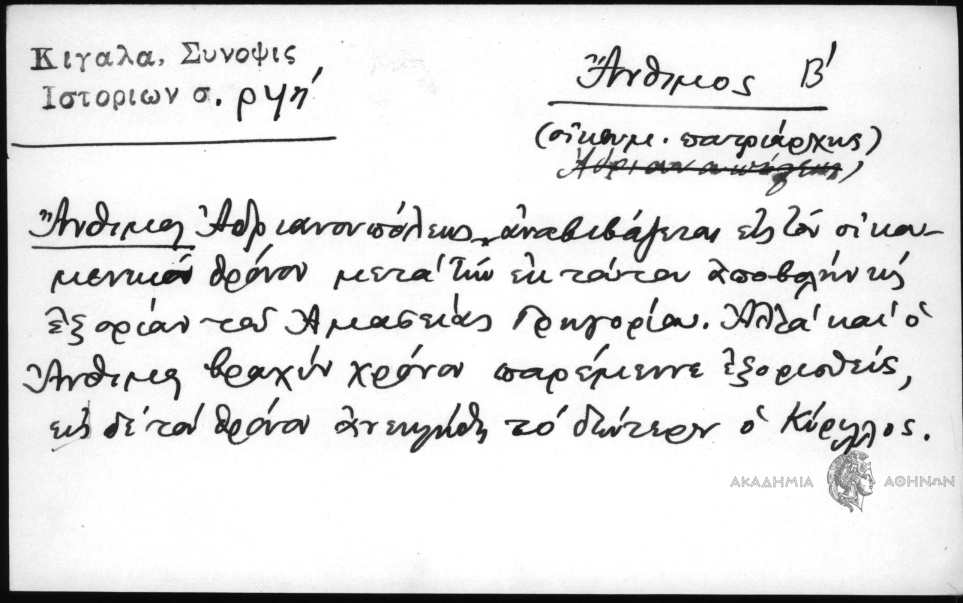 Κιγαλα, Συνοψις
Ιστοριων σ. ρψη΄
Ἄνθιμος Β΄
(οἰκουμ. πατριάρχης)
Ἀδριανουπόλεως)
Ἄνθιμος Ἀδριανουπόλεως, ἀναβιβάζεται εἰς τὸν οἰκου-
μενικὸν θρόνον μετὰ τὴν ἐκ τούτου ἀποβολὴν κ̀
ἐξορίαν τοῦ Ἀμασείας Γρηγορίου. Ἀλλὰ καὶ ὁ
Ἄνθιμος βραχὺν χρόνον παρέμεινε ἐξορισθείς,
εἰς δὲ τὸν θρόνον ἀνεκλήθη τὸ δεύτερον ὁ Κύριλλος.
ΑΚΑΔΗΜΙΑ ΑΘΗΝΩΝ